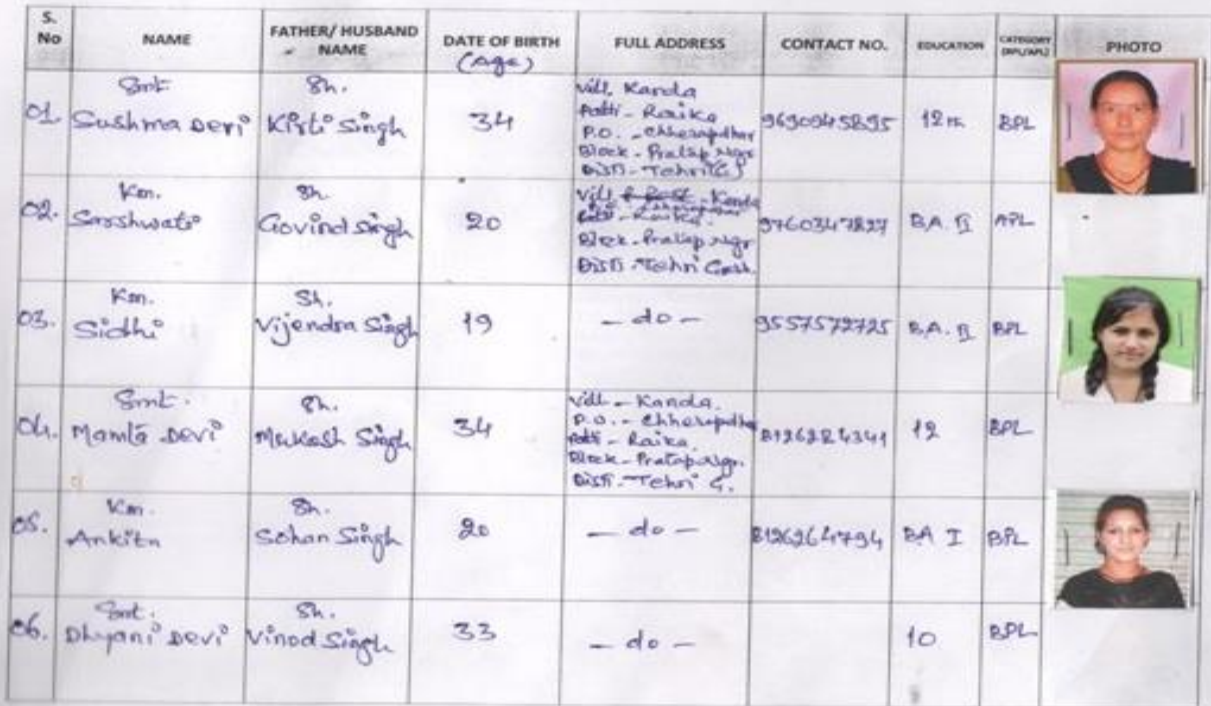 S. No NAME FATHER/ HUSBAND NAME DATE OF BIRTH (Age) FULL ADDRESS CONTACT NO. EDUCATION CATEGORY (BPL/APL) PHOTO
01. Smt. Sushma Devi Sh. Kirti Singh 34
Vill. Kanda
Patti - Raika
P.O. -
Block - Pratap Ngr
Distt - Tehri (G)
12 BPL
02. Km. Sarshwati Sh. Govind Singh 20
Vill & Post - Kanda
Patti - Raika
Block - Pratap Ngr
Distt - Tehri Garh.
B.A. II APL
03. Km. Sidhi Sh. Vijendra Singh 19 - do - 9557572725 B.A. II BPL
04. Smt. Mamta Devi Sh. Mukesh Singh 34
Vill - Kanda.
P.O. -
Patti - Raika
Block - Pratap Ngr.
Distt - Tehri G.
12 BPL
05. Km. Ankita Sh. Sohan Singh 20 - do - BA I BPL
06. Smt. Dhyani Devi Sh. Vinod Singh 33 - do - 10 BPL